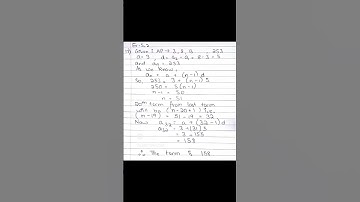 Ex-5.2
17) Given : AP → 3, 8, 13 ..., 253
a = 3, d = a2 - a1 = 8 - 3 = 5
and an = 253
As we know,
an = a + (n-1)d
So, 253 = 3 + (n-1)5
250 = 5(n-1)
n-1 = 50
n = 51
20th term from last term
will be (n-20+1) i.e.
(n-19) = 51 - 19 = 32
Now a32 = a + (32-1)d
a32 = 3 + (31)5
= 3 + 155
= 158
∴ The term is 158